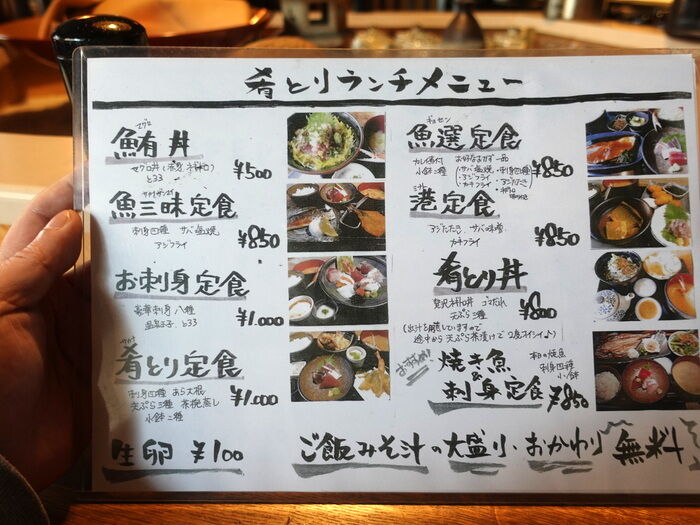 肴とりランチメニュー
マグロ
鮪丼
マグロ丼(赤身 ネギトロ)
とろろ
¥500
サカナザンマイ
魚三昧定食
刺身四種 サバ塩焼
アジフライ
¥850
お刺身定食
豪華刺身八種
温泉玉子 とろろ
¥1.000
サカナ
肴とり定食
刺身四種 あら大根
天ぷら三種 茶碗蒸し
小鉢二種
¥1.000
生卵 ¥100
ギョセン
魚選定食
カレイ煮付
小鉢三種
お好きなおかず一品
・サバ塩焼 ・刺身四種
・アジフライ ・アジたたき
・カキフライ
¥850
ミナト
港定食
アジたたき サバの味噌
カキフライ
¥850
肴とり丼
贅沢ネギトロ丼 ゴマだれ
天ぷら三種
¥800
(出汁を用意していますので
途中から天ぷら茶漬けで2度オイシイ♪)
おすすめ!
焼き魚
&
刺身定食
本日の焼魚
刺身四種
小鉢
¥850
ご飯みそ汁の大盛り・おかわり無料